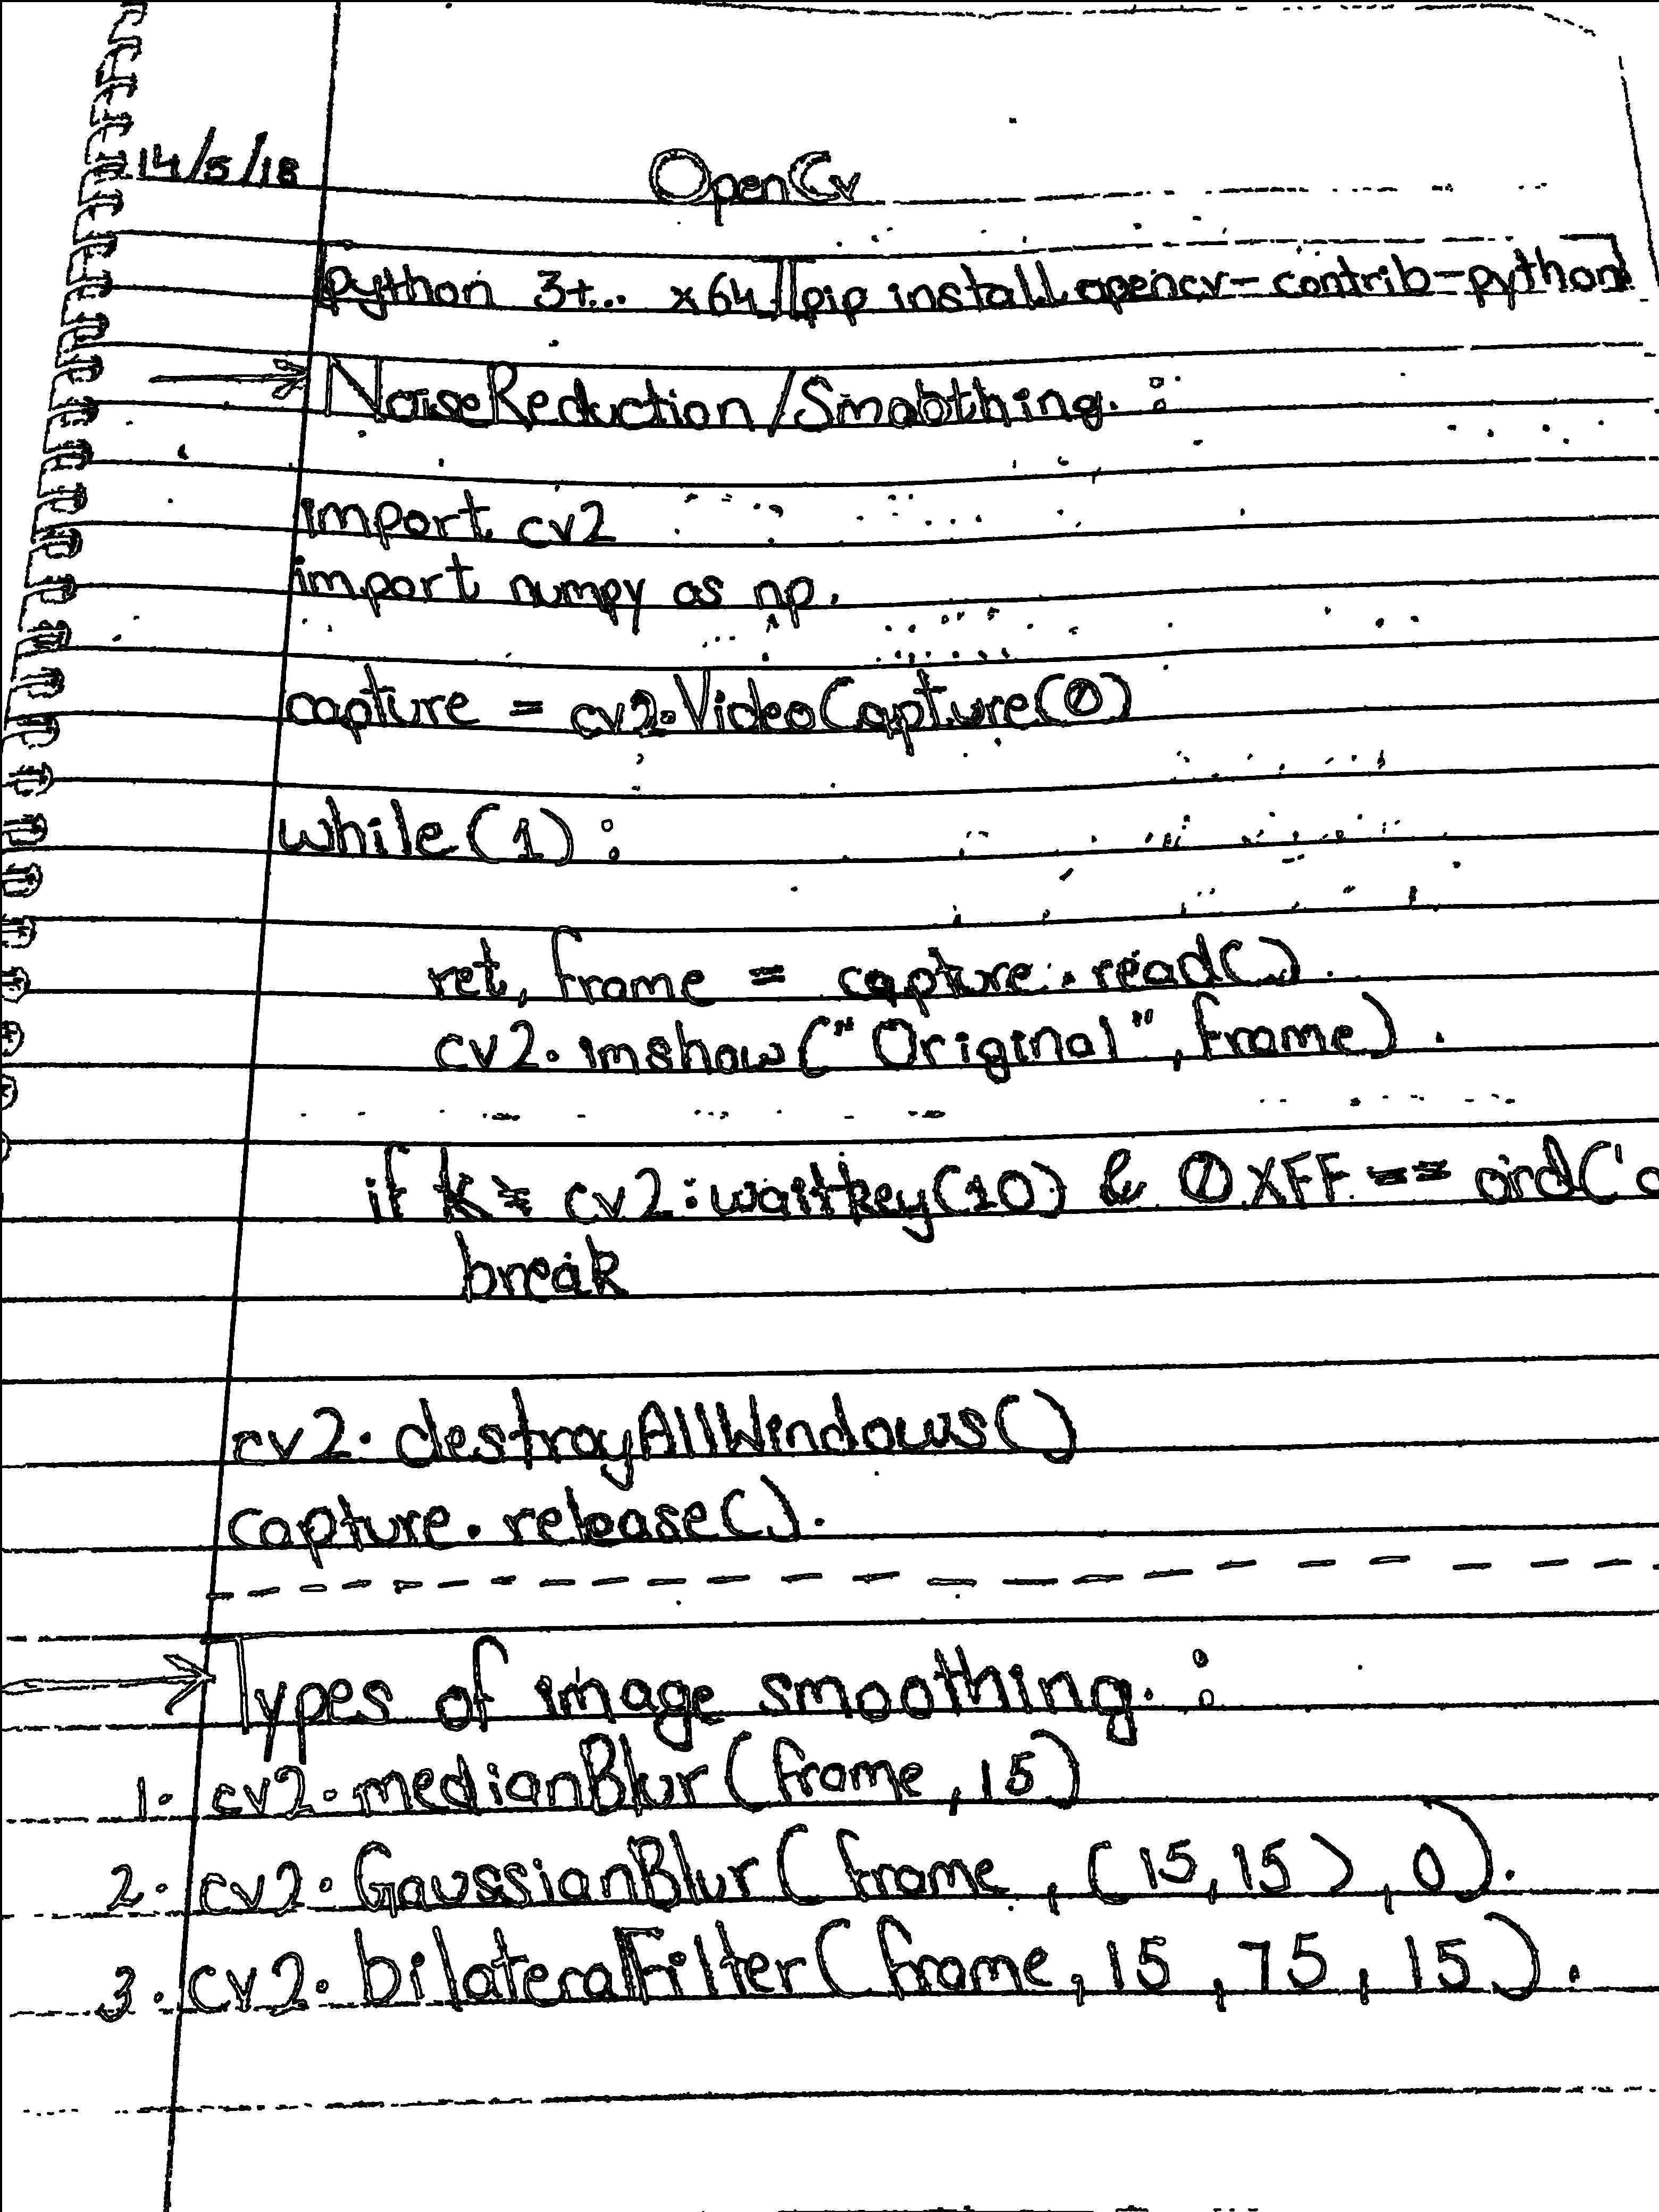 14/5/18
OpenCv
[Python 3+... x64] [pip install opencv-contrib-python]
→ NoiseReduction/Smoothing. :
import cv2
import numpy as np.
capture = cv2.VideoCapture(0)
while(1):
ret, frame = capture.read().
cv2.imshow("Original", frame).
if k = cv2.waitkey(10) & 0XFF == ord('
break
cv2.destroyAllWindows()
capture.release().
→ Types of image smoothing. :
1. cv2.medianBlur(frame, 15)
2. cv2.GaussianBlur(frame, (15, 15), 0).
3. cv2.bilateralFilter(frame, 15, 75, 15).